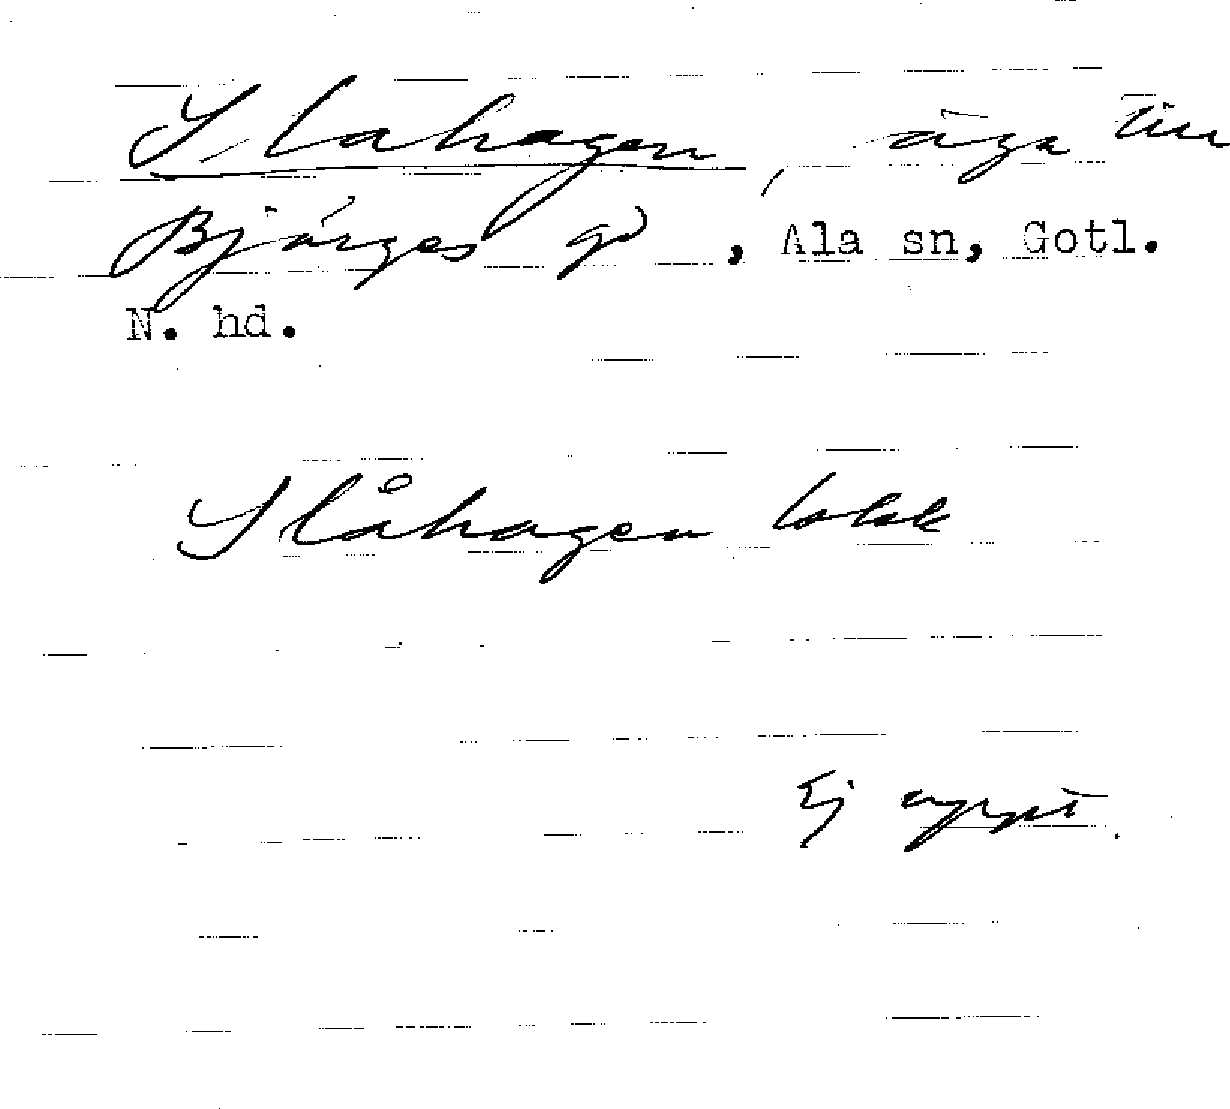 Slahagen, äga till
Bjärges gd, Ala sn, Gotl.
N. hd.
Slåhagen lokk
Ej uppt.